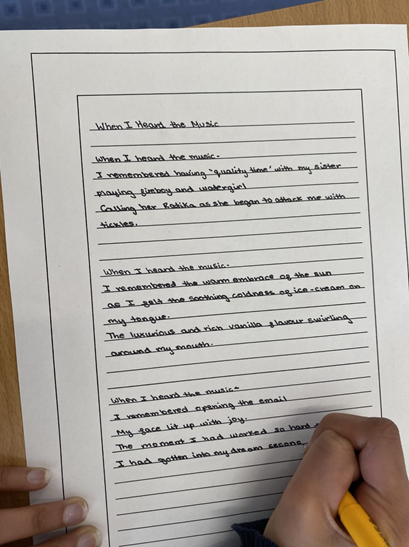 When I Heard the Music
When I heard the music-
I remembered having "quality time" with my sister
playing fireboy and watergirl
Calling her Radika as she began to attack me with
tickles.
When I heard the music-
I remembered the warm embrace of the sun
as I felt the soothing coldness of ice-cream on
my tongue.
The luxurious and rich vanilla flavour swirling
around my mouth.
When I heard the music-
I remembered opening the email
My face lit up with joy.
The moment I had worked so hard
I had gotten into my dream secon